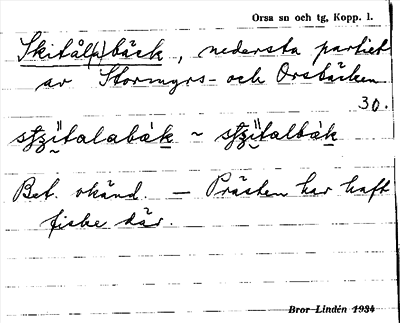 Orsa sn och tg, Kopp. l.
Skitål(a)bäck, nedersta partiet
av Stormyrs- och Orsbäcken
30.
Bet. okänd. — Prästen har haft
fiske där.
Bror Lindén 1934